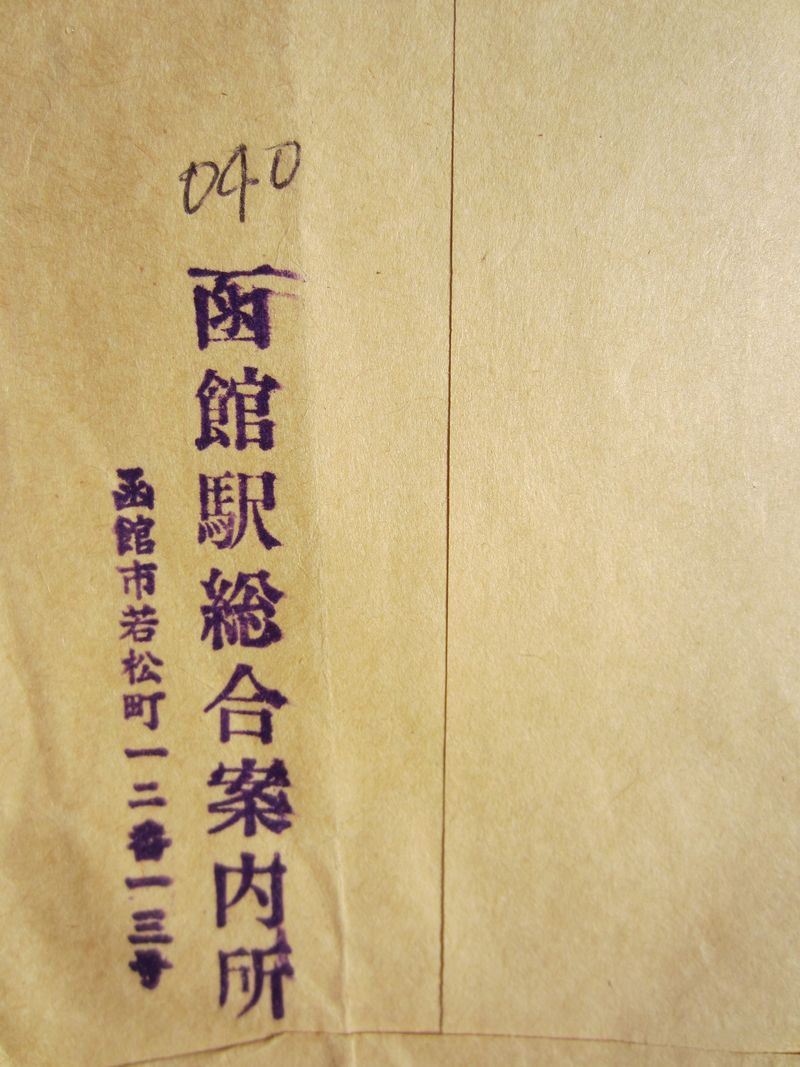 040
函館駅総合案内所
函館市若松町一二番一三号